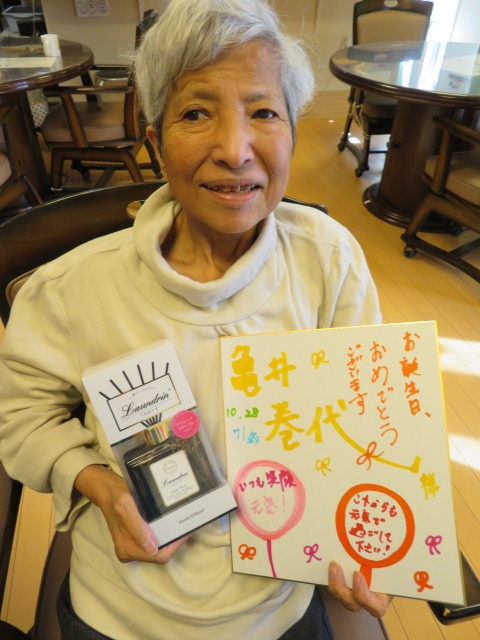 お誕生日、
おめでとう
ございます
亀井
巻代
様
10.28
71歳
いつも笑顔
元気!
これからも
元気で
過ごして
下さい!
Laundrin'
TOKYO
Laundrin'
Room Diffuser